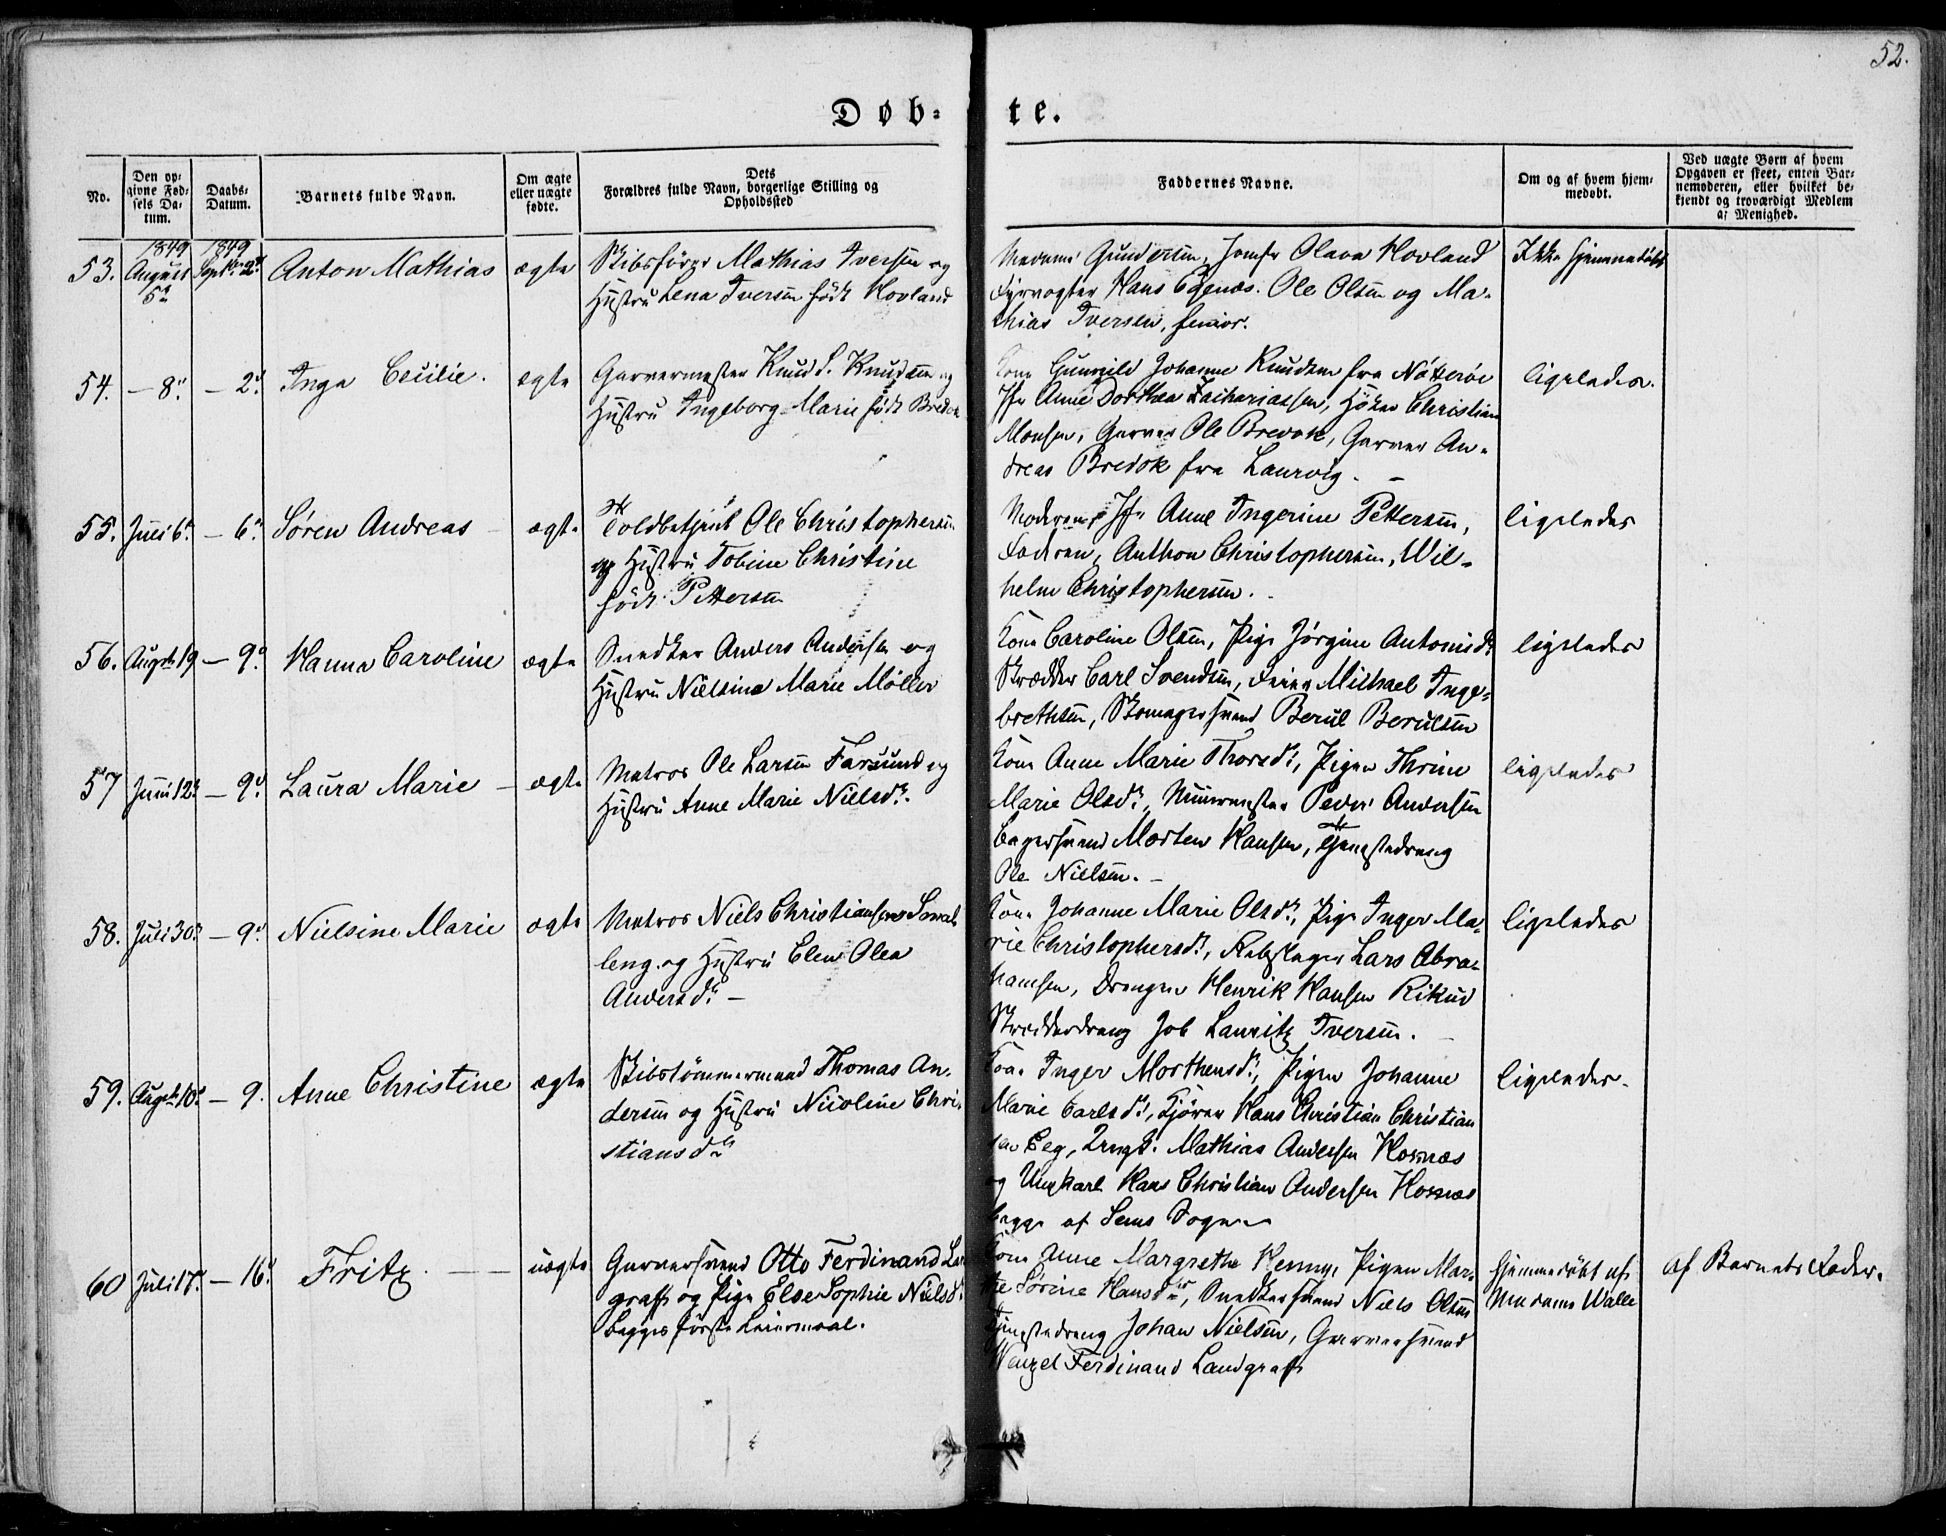 52.
Døb-te.
No.
Den op-
givne Fød-
sels Da-
tum.
Daabs-
Datum.
Barnets fulde Navn.
Om ægte
eller uægte
fødte.
Dets
Forældres fulde Navn, borgerlige Stilling og
Opholdssted
Faddernes Navne.
Om og af hvem hjem-
medøbt.
Ved uægte Børn af hvem
Opgaven er skeet, enten Bar-
nemoderen, eller hvilket be-
kjendt og troværdigt Medlem
af Menighed.
1849
1849
53. August 5te Septbr 2d Anton Mathias ægte
Skibsfører Mathias Iversen og
Hustru Lena Iversen født Hovland
Madame Gundersen, Jomfr Olava Hovland
Fyrvogter Hans Egenæs. Ole Olsen og Ma-
thias Iversen, senior.
Ikke hjemmedøbt
54. – 8d – 2d Inga Cecilie. ægte
Garvermester Knud S. Knudsen og
Hustru Ingeborg Marie født Bredok
Kone Gunnild Johanne Knudsen fra Nøtterøe
Jfr Anne Dorthea Zachariassen, Høker Christian
Monsen, Garver Ole Bredok, Garver An-
dreas Bredok fra Laurvig. –
ligeledes.
55. Juli 6te – 6te Søren Andreas – ægte
Toldbetjent Ole Christophersen
og Hustru Tobine Christine
født Pettersen
Moderen, Jfr Anne Ingerine Pettersen,
Faderen, Anthon Christophersen, Wil-
helm Christophersen.
ligeledes
56. Augst 19 – 9d Hanna Caroline ægte
Snedker Anders Andersen og
Hustru Nielsine Marie Møller
Kone Caroline Olsen, Pige Jørgine Antonisdr
Skrædder Carl Svendsen, Feier Michael Inge-
brethsen, Skomagersvend Berul Berulsen
ligeledes
57 Juni 12te – 9d Laura Marie – ægte
Matros Ole Larsen Farsund og
Hustru Anne Marie Nielsdr.
Kone Anne Marie Thorsdr, Pigen Thrine
Marie Olsdr, Muurmester Peder Andersen
Bagersvend Morten Hansen, Tjenestedreng
Ole Nielsen. –
ligeledes
58. Juli 30te – 9d Nielsine Marie ægte
Matros Niels Christiansen
leng og Hustru Elen Olea
Andersdr –
Kone Johanne Marie Olsdr, Pige Inger Ma-
rie Christophersdr, Rebslager Lars Abra-
hamsen, Drengen Henrik Hansen Rikud
Skrædderdreng Job Lauritz Iversen.
ligeledes
59. Augst 10de – 9. Anne Christine ægte
Skibstømmermand Thomas An-
dersen og Hustru Nicoline Chri-
stiansdr
Kone Inger Morthensdr, Pigen Johanne
Marie Carlsdr, Kjører Hans Christian Christian
sen Eeg, Mathias Andersen Hosnæs
og Ungkarl Hans Christian Andersen Hosnæs
begge af Sems Sogn
ligeledes.
60 Juli 17de – 16d Fritz. – – uægte
Garversvend Otto Ferdinand Lan
graff og Pige Else Sophie Nielsdr
begges første Leiermaal.
Kone Anne Margrethe Henny, Pigen Mar-
the Sørine Hansdr, Snedkersvend Niels Olsen
Tjenestedreng Johan Nielsen, Garversvend
Wenzel Ferdinand Landgraff
hjemmedøbt af
Madame Walle
af Barnets Fader.